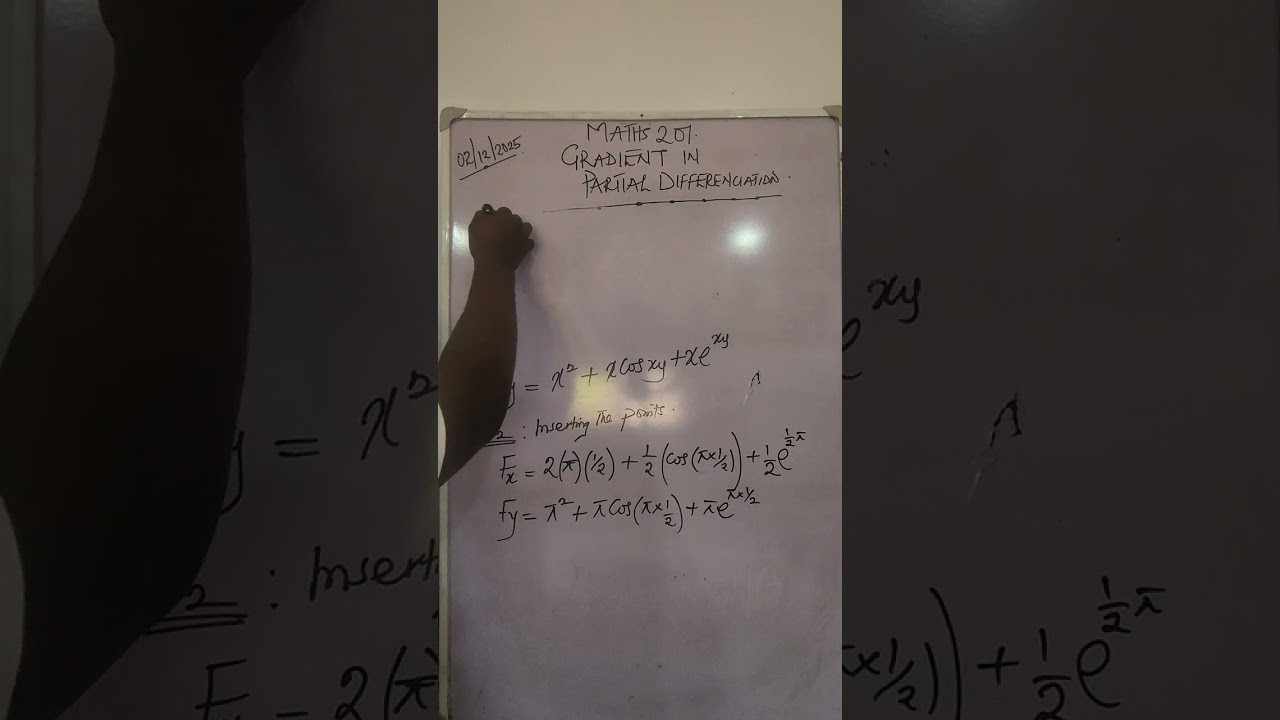 02/12/2025
MATHS 201.
GRADIENT IN
PARTIAL DIFFERENCIATION.
y = x² + x Cos xy + x e^{xy}
2 : Inserting The points.
F_x = 2(π)(1/2) + 1/2 (Cos(π×1/2)) + 1/2 e^{1/2 π}
Fy = π² + π Cos(π×1/2) + π e^{π×1/2}